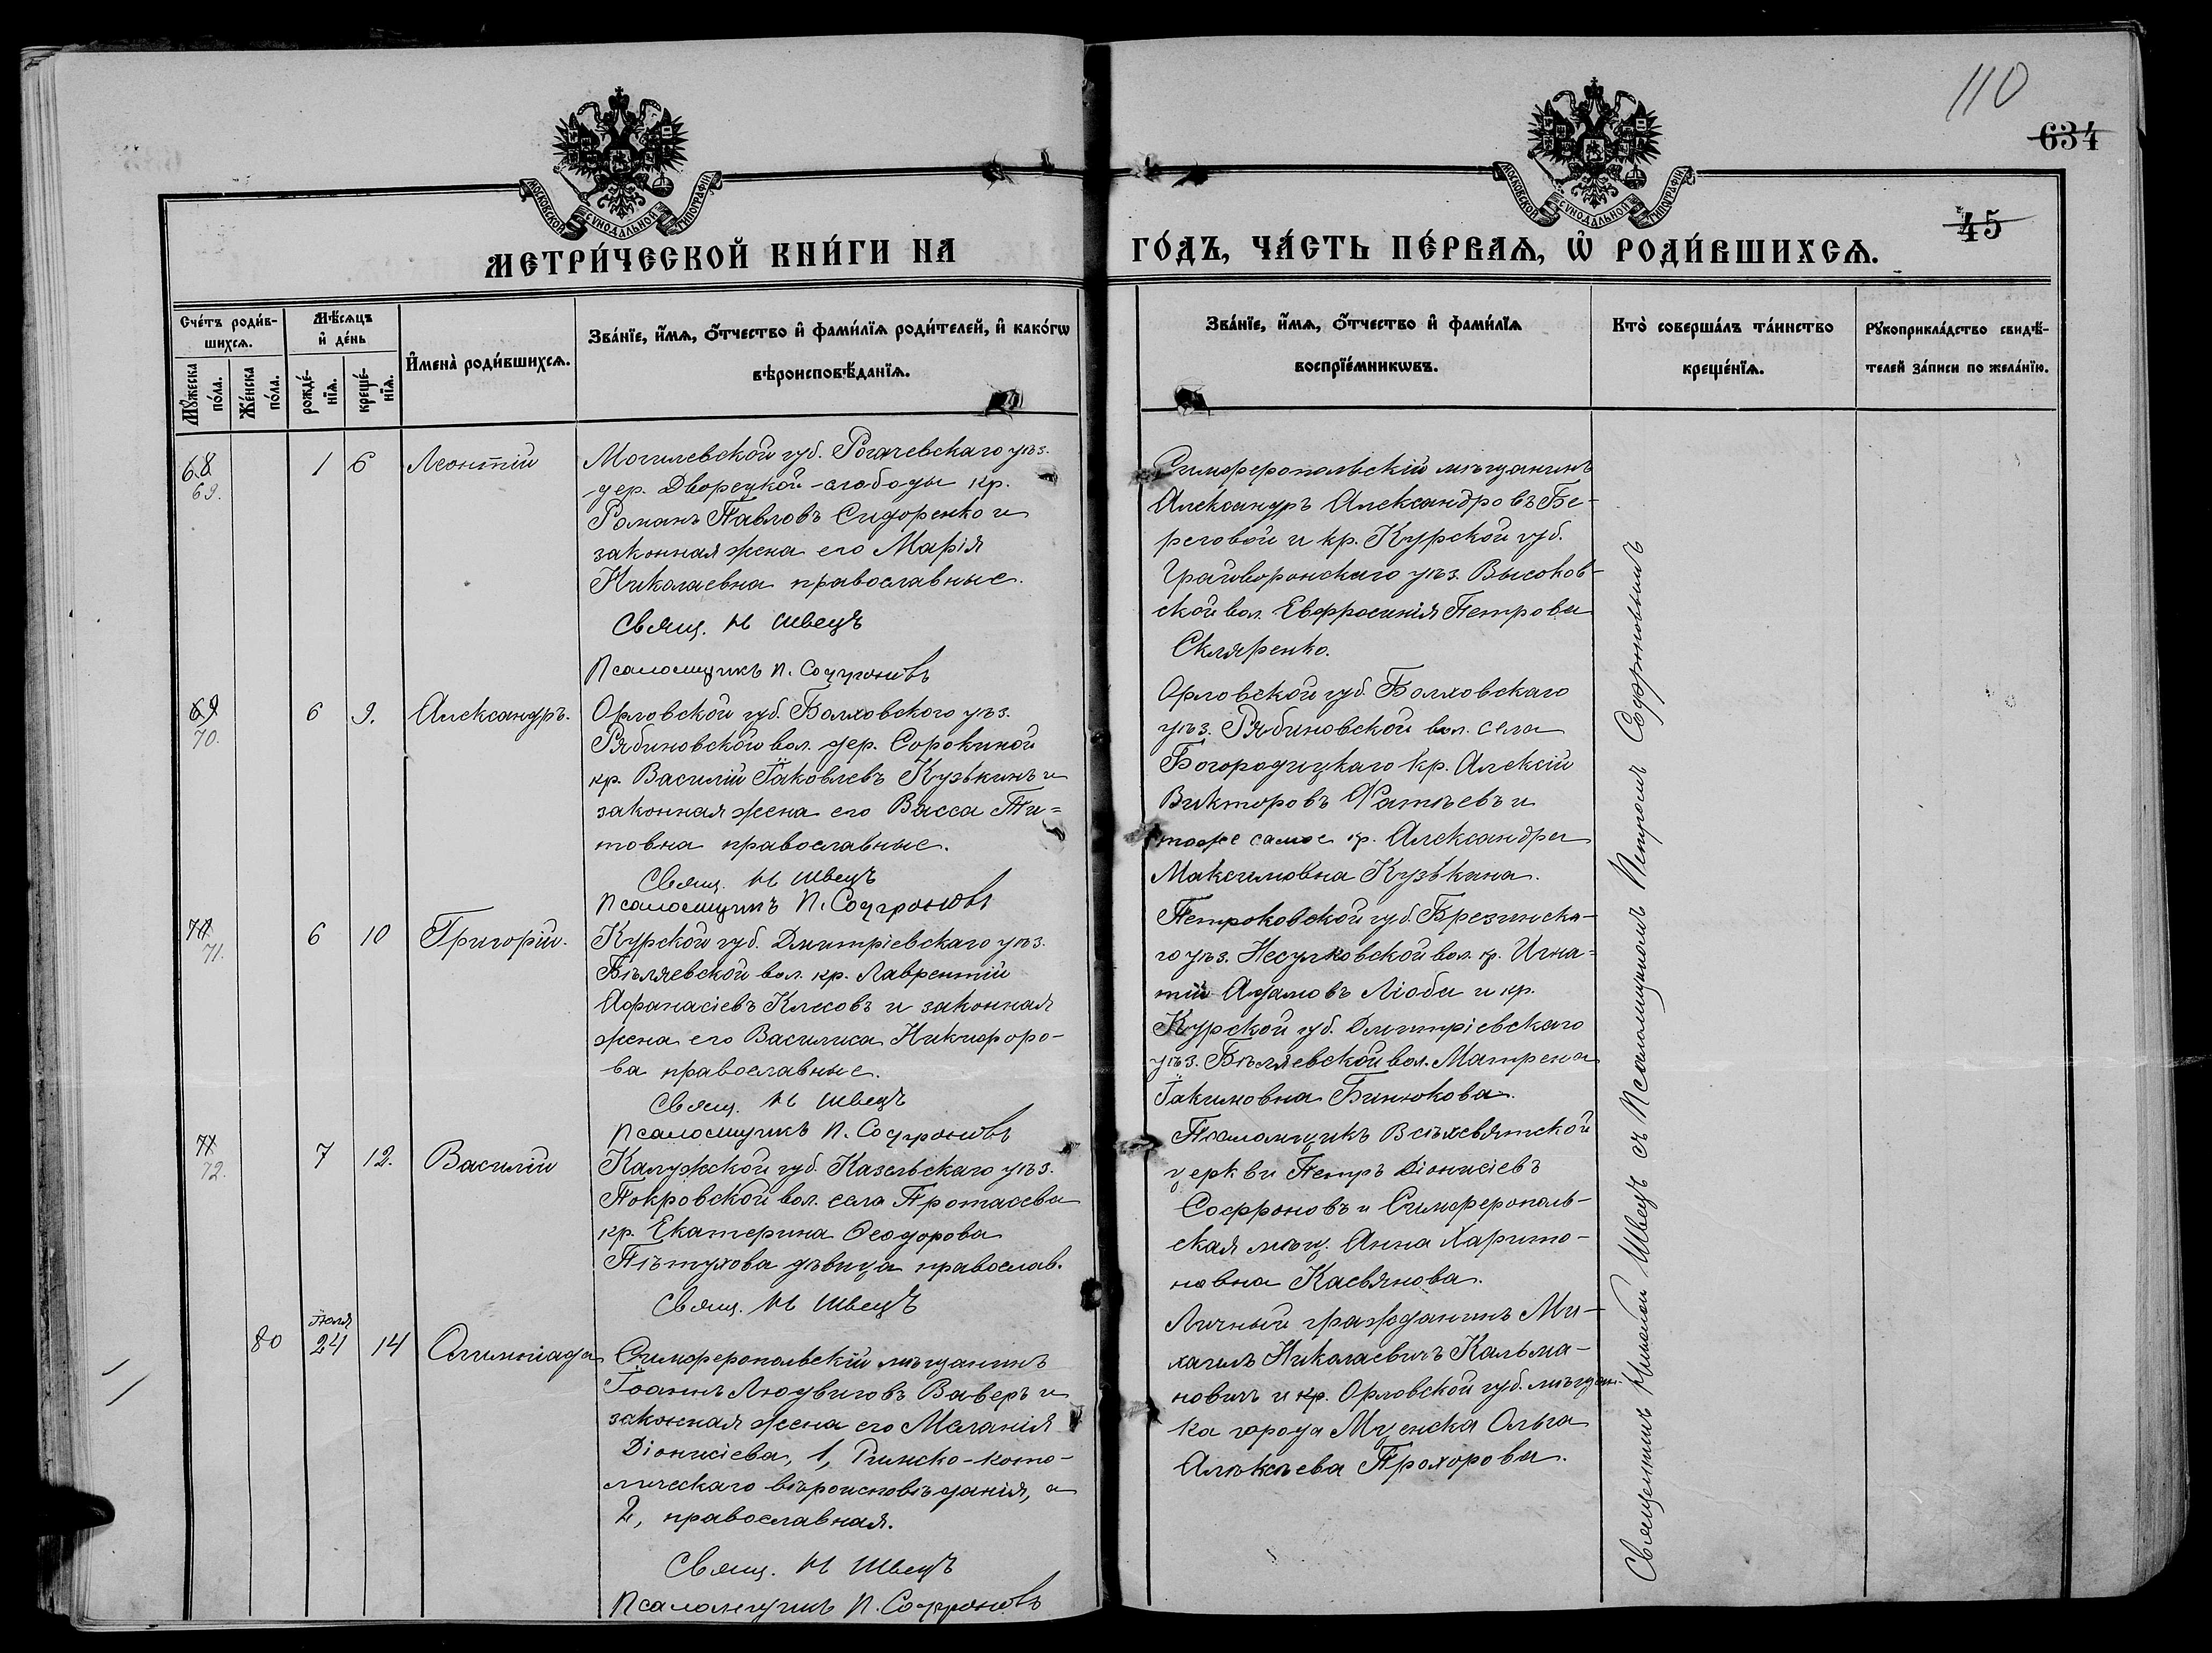 110
634
45
МОСКОВСКОЙ СѴНОДАЛЬНОЙ ТИПОГРАФІИ
МОСКОВСКОЙ СѴНОДАЛЬНОЙ ТИПОГРАФІИ
МЕТРИ́ЧЕСКОЙ КНИ́ГИ НА ГО́ДЪ, ЧА́СТЬ ПЕ́РВАѦ, Ѡ҆ РОДИ́ВШИХСѦ.
Сче́тъ роди́в-
шихсѧ.
Мꙋ́жеска по́ла.
Же́нска по́ла.
Мѣ́сѧцъ
и҆ де́нь
рожде́-
нїѧ.
креще́-
нїѧ.
И҆мена̀ роди́вшихсѧ.
Зва́нїе, и҆́мѧ, ѻ҆́тчество и҆ фами́лїѧ роди́телей, и҆ како́гѡ
вѣроисповѣ́данїѧ.
Зва́нїе, и҆́мѧ, ѻ҆́тчество и҆ фами́лїѧ
воспрїе́мникѡвъ.
Кто̀ соверша́лъ та́инство
креще́нїѧ.
Рꙋкоприкла́дство свидѣ́-
телей за́писи по жела́нїю.
68
69.
1 6 Леонтій
Могилевской губ. Рогачевскаго уѣз.
дер. Дворецкой-слободы кр.
Романъ Павловъ Сидоренко и
законная жена его Марія
Николаевна православные.
Свящ. Н Швецъ
Псаломщикъ П. Софроновъ
Симферопольскій мѣщанинъ
Александръ Александровъ Бе-
реговой и кр. Курской губ.
Грайворонскаго уѣз. Высоков-
ской вол. Евфросинія Петрова
Скляренко.
69
70.
6 9. Александръ.
Орловской губ. Болховского уѣз.
Рябиновской вол. дер. Сорокиной
кр. Василій Іаковлевъ Кузькинъ и
законная жена его Васса Ти=
товна православные.
Свящ. Н Швецъ
Псаломщикъ П. Софроновъ
Орловской губ. Болховскаго
уѣз. Рябиновской вол. села
Богородицкаго кр. Алексій
Викторовъ Фатѣевъ и
тоже самое кр. Александра
Максимовна Кузькина.
70
71.
6 10 Григорій.
Курской губ. Дмитріевскаго уѣз.
Бѣляевской вол. кр. Лаврентій
Афанасіевъ Клесовъ и законная
жена его Василиса Никифоро-
ва православные.
Свящ. Н Швецъ
Псаломщикъ П. Софроновъ
Петроковской губ. Брезинска-
го уѣз. Несулковской вол. кр. Игна=
тій Адамовъ Люба и кр.
Курской губ. Дмитріевскаго
уѣз. Бѣляевской вол. Матрена
Іакимовна Бинюкова.
71
72.
7 12. Василій
Калужской губ. Казельскаго уѣз.
Покровской вол. села Протасева
кр. Екатерина Ѳеодорова
Пѣтухова дѣвица православ.
Свящ. Н Швецъ
Псаломщикъ Всѣхсвятской
церкви Петръ Діонисіевъ
Софроновъ и Симферополь-
ская мѣщ. Анна Харито-
новна Касьянова.
80
Іюля
24 14 Олимпіада
Симферопольскій мѣщанинъ
Іоаннъ Людвиговъ Ваверъ и
законная жена его Меланія
Діонисіева, 1, Римско-като-
лическаго вѣроисповѣданія, а
2, православная.
Свящ. Н Швецъ
Псаломщикъ П. Софроновъ
Личный гражданинъ Ми-
хаилъ Николаевичъ Кальма-
новичъ и кр. Орловской губ. мѣщан.
ка города Мценска Ольга
Алѣксѣева Прохорова.
Священникъ Николай Швецъ съ Псаломщикомъ Петромъ Софроновымъ